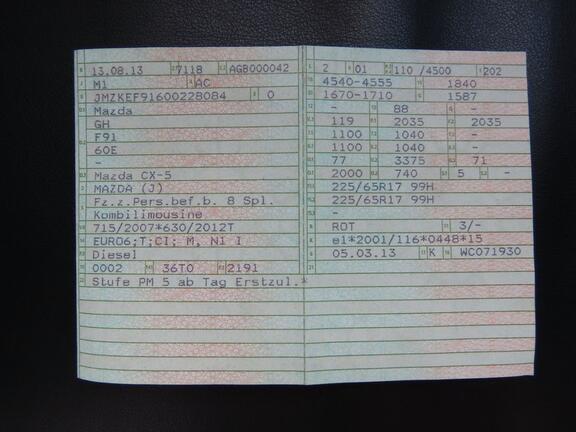 13.08.13 7118 AGB000042
M1 AC
JMZKEF91600228084 0
Mazda
GH
F91
60E
-
Mazda CX-5
MAZDA (J)
Fz.z.Pers.bef.b. 8 Spl.
Kombilimousine
715/2007*630/2012T
EURO6;T;CI; M, N1 I
Diesel
0002 36T0 2191
Stufe PM 5 ab Tag Erstzul.*
2 01 110 /4500 202
4540-4555 1840
1670-1710 1587
- 88 -
119 2035 2035
1100 1040 -
1100 1040 -
77 3375 71
2000 740 5 -
225/65R17 99H
225/65R17 99H
-
ROT 3/-
e1*2001/116*0448*15
05.03.13 K WC071930